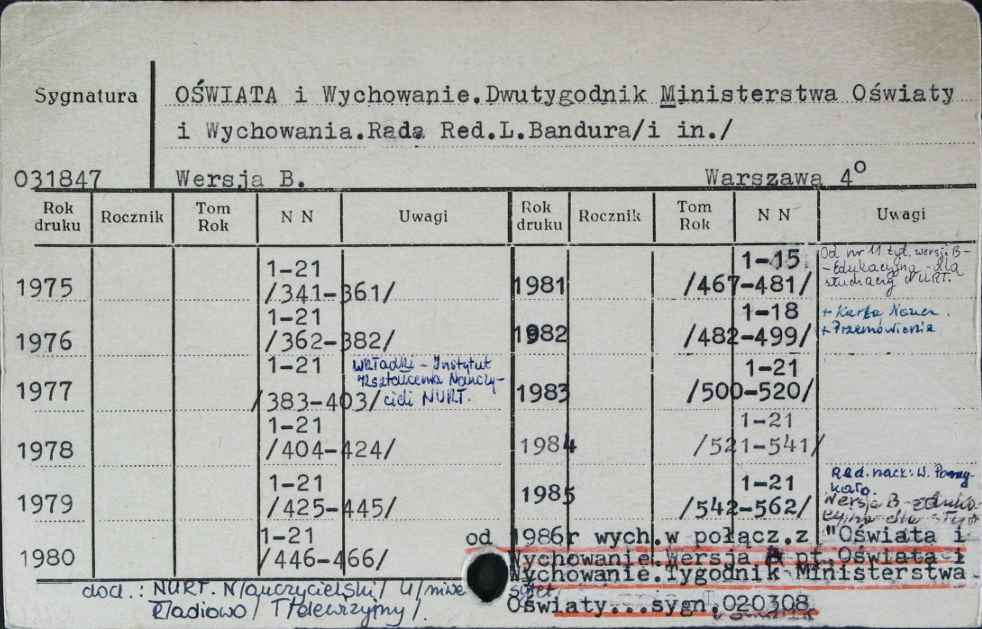 Sygnatura
OŚWIATA i Wychowanie.Dwutygodnik Ministerstwa Oświaty
i Wychowania.Rada Red.L.Bandura/i in./
031847 Wersja B. Warszawa 4°
Rok druku Rocznik Tom Rok N N Uwagi Rok druku Rocznik Tom Rok N N Uwagi
1975 1-21 /341-361/
1976 1-21 /362-382/
1977 1-21 /383-403/ wkładki - Instytut Kształcenia Nauczycieli NURT.
1978 1-21 /404-424/
1979 1-21 /425-445/
1980 1-21 /446-466/
1981 1-15 /467-481/ Od nr 11 tyt. wersji B - Edukacyjna dla NURT.
1982 1-18 /482-499/ + Karta Naucz. + Przemówienia
1983 1-21 /500-520/
1984 1-21 /521-541/
1985 1-21 /542-562/ Red. nacz: W. Pomykało. Wersja B
od 1986r wych.w połącz.z "Oświata i
Wychowanie.Wersja A pt.Oświata i
Wychowanie.Tygodnik Ministerstwa
Oświaty...sygn.020308
dod.: NURT. N/auczycielski/ U/niwersytet/
R/adiowo/ T/elewizyjny/.